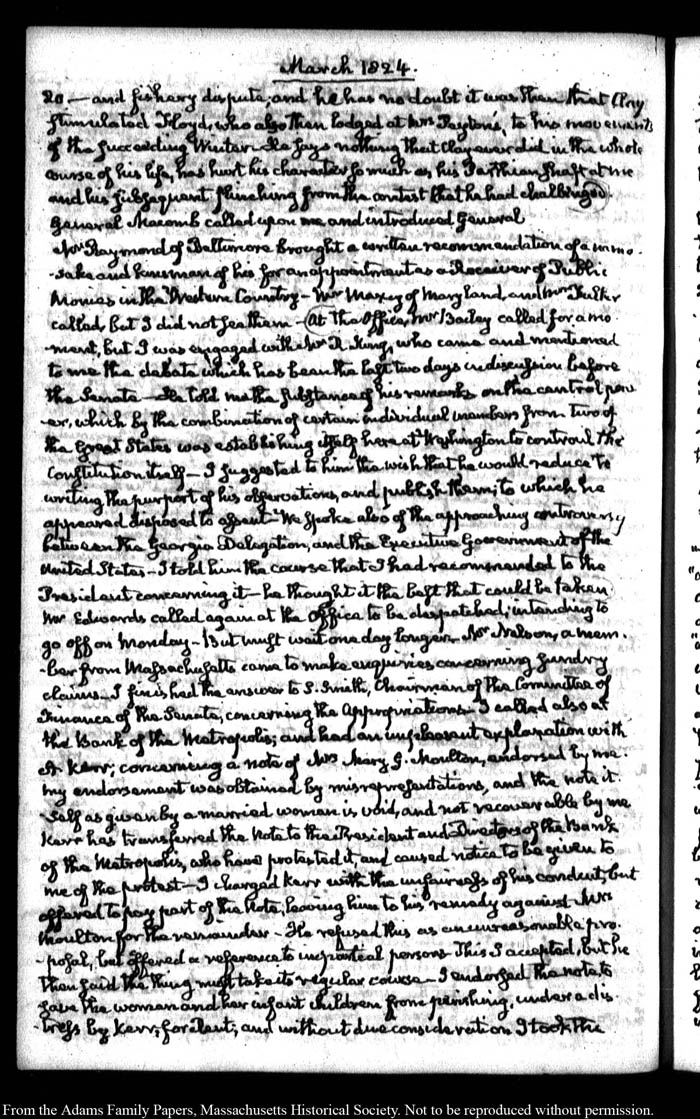 March 1824.
20.— and fishery dispute, and he has no doubt it was then that Clay
stimulated Floyd, who also then lodged at Mrs Peyton's, to his movements
of the succeeding Winter. He says nothing that Clay ever did in the whole
course of his life, has hurt his character so much as his Parthian shaft at me
and his subsequent flinching from the contest that he had challenged.
General Macomb called upon me and introduced General
Mr Raymond of Baltimore brought a written recommendation of a name-
-sake and kinsman of his for an appointment as a Receiver of Public
Monies in the Western Country— Mr Maxcy of Maryland, and Mr Fulker
called, but I did not see them— At the Office, Mr Bailey called for a mo-
ment, but I was engaged with Mr R. King, who came and mentioned
to me the debate which has been the last two days in discussion before
the Senate— He told me the substance of his remarks on the central pow-
-er, which by the combination of certain individual members from two of
the great States was establishing itself here at Washington to controul the
Constitution itself— I suggested to him the wish that he would reduce to
writing the purport of his observations, and publish them; to which he
appeared disposed to assent— We spoke also of the approaching controversy
between the Georgia Delegation, and the Executive Government of the
United States— I told him the course that I had recommended to the
President concerning it— he thought it the best that could be taken
Mr Edwards called again at the Office to be despatched; intending to
go off on Monday— But must wait one day longer. Mr Nelson, a mem-
-ber from Massachusetts came to make enquiries concerning sundry
claims. I finished the answer to S. Smith, Chairman of the Committee of
Finance of the Senate, concerning the Appropriations— I called also at
the Bank of the Metropolis; and had an unpleasant explanation with
A Kerr; concerning a note of Mrs Mary G. Moulton, endorsed by me.
my endorsement was obtained by misrepresentations, and the note it
self as given by a married woman is void, and not recoverable by me
Kerr has transferred the Note to the President and Directors of the Bank
of the Metropolis, who have protested it, and caused notice to be given to
me of the protest— I charged Kerr with the unfairness of his conduct, but
offered to pay part of the Note, leaving him to his remedy against Mrs
Moulton for the remainder— He refused this as an unreasonable pro-
-posal, but offered a reference to impartial persons. This I accepted, but he
then said the thing must take its regular course— I endorsed the note, to
save the woman and her infant children from perishing, under a dis-
-tress by Kerr, for rent; and without due consideration I took the
From the Adams Family Papers, Massachusetts Historical Society. Not to be reproduced without permission.